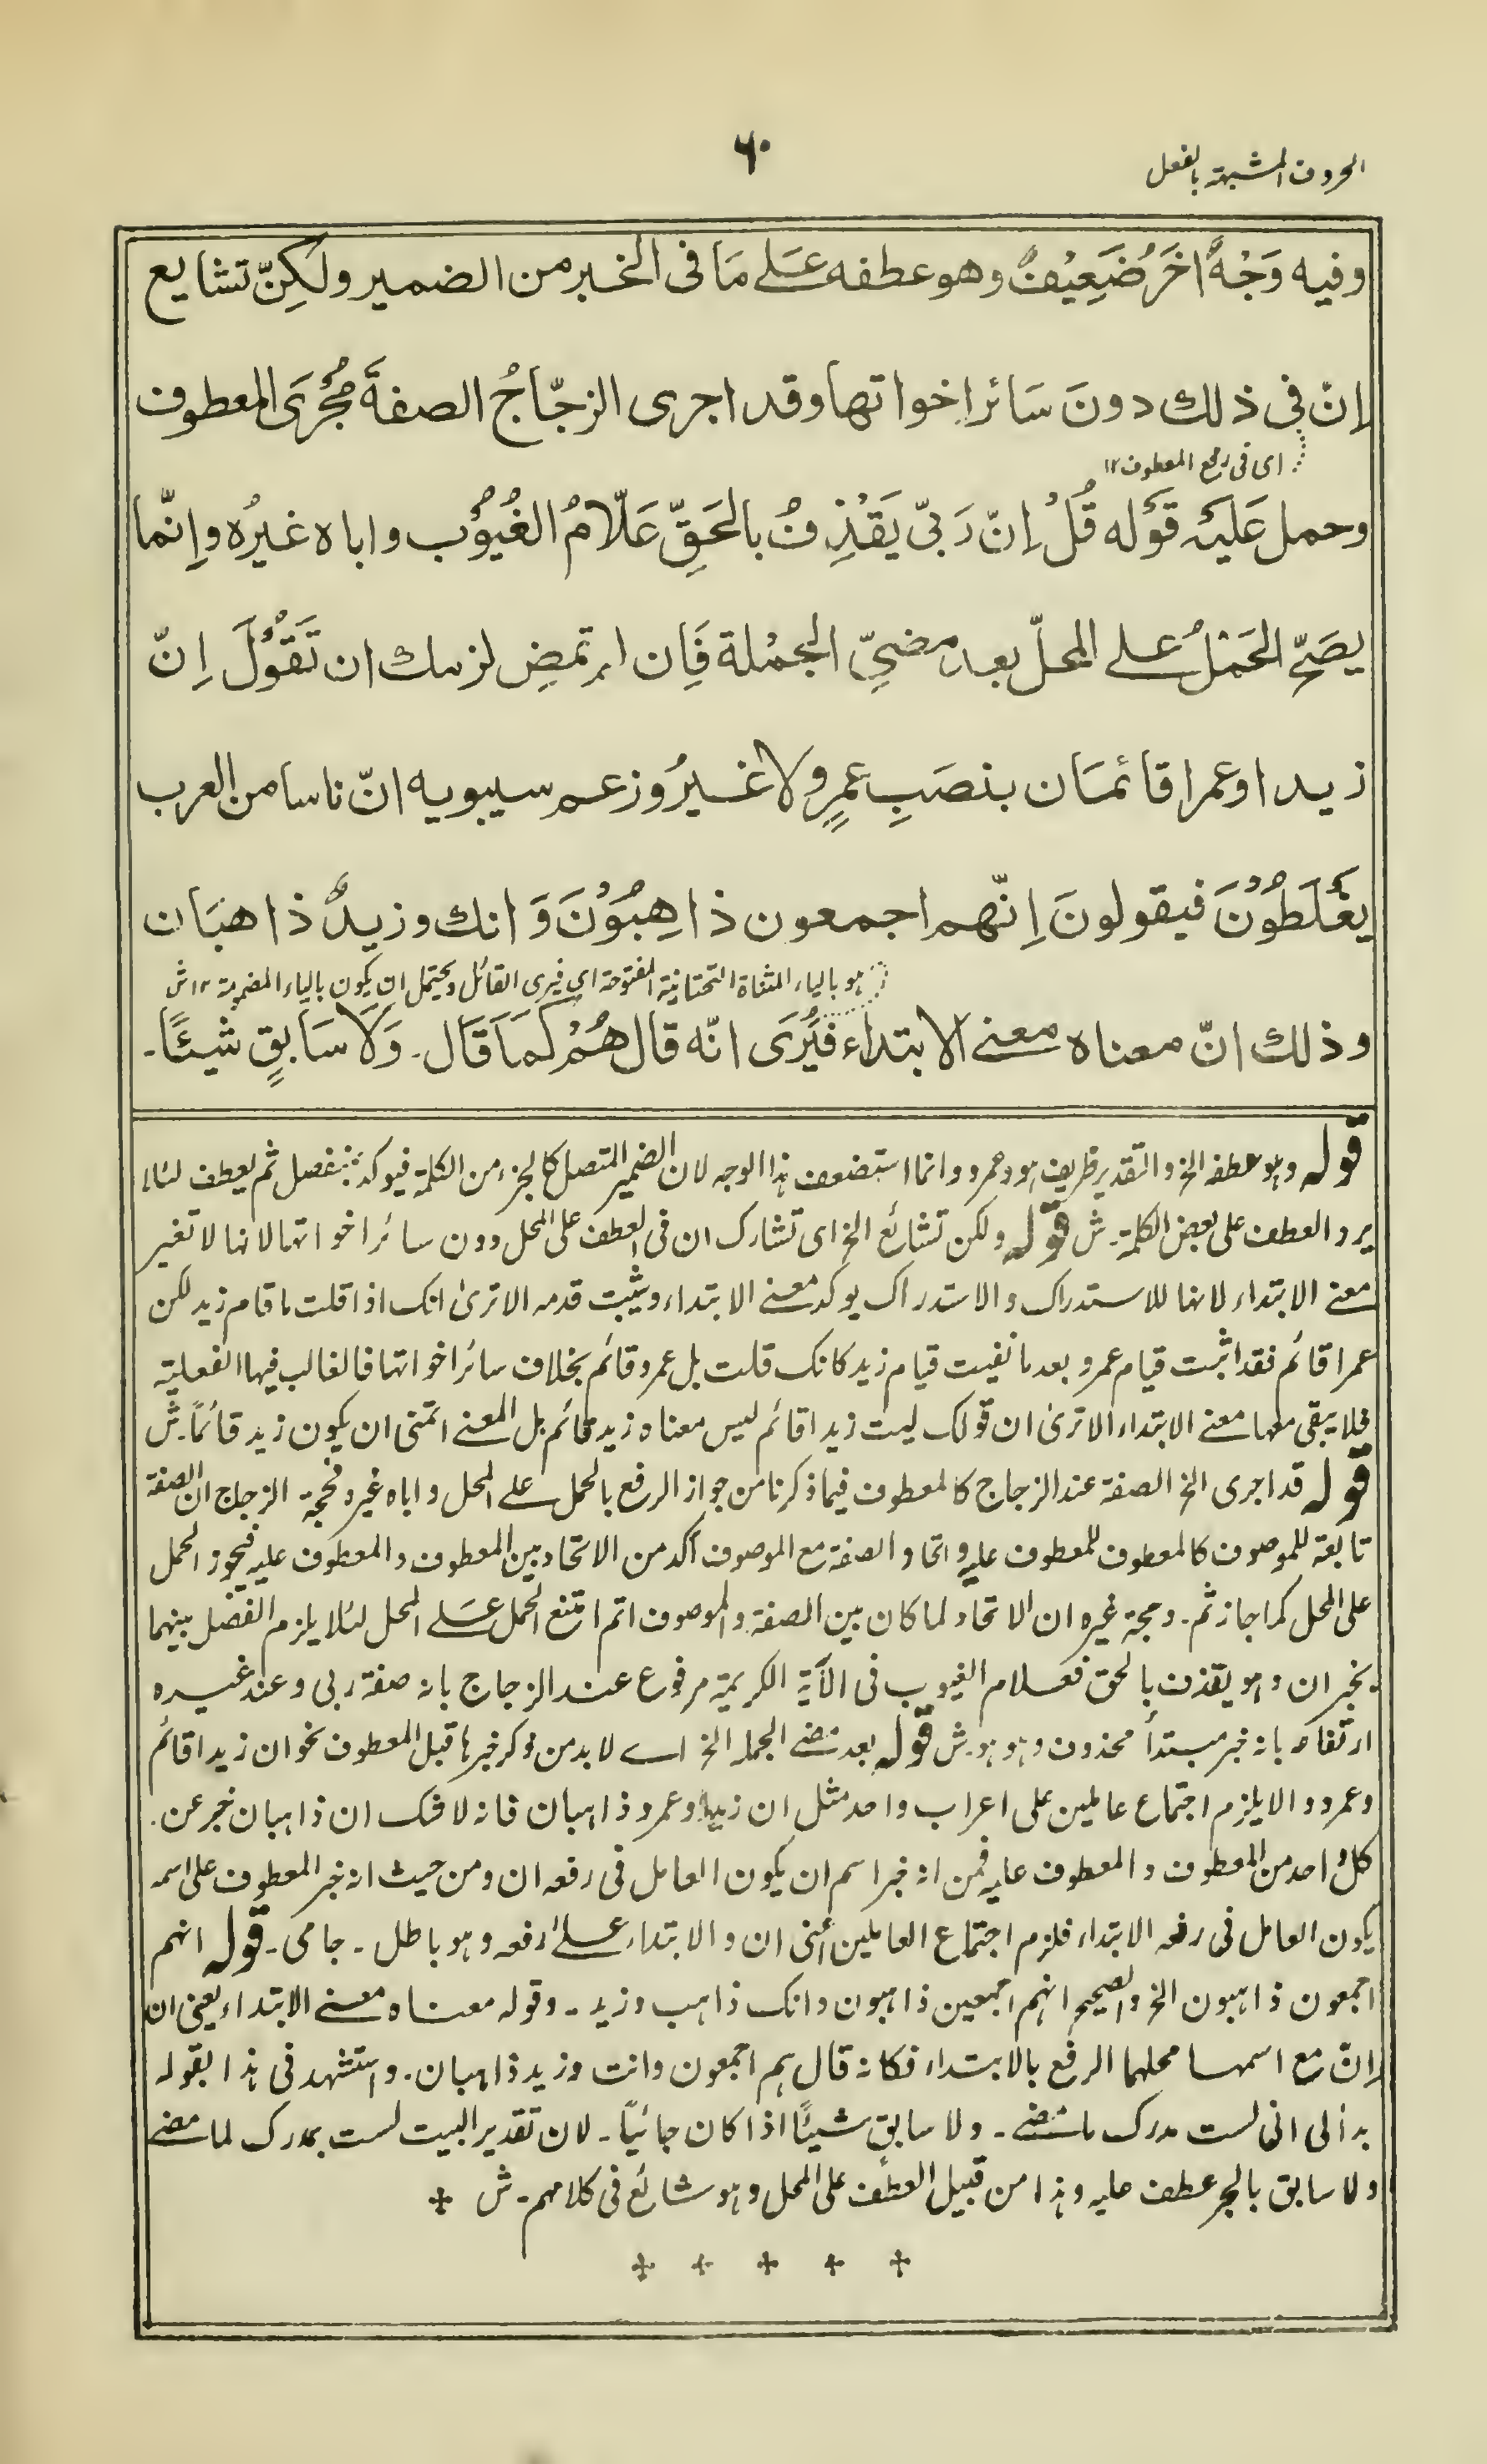 الحروف المشبهة بالفعل
٦٠
وفيه وَجْهٌ اخَرُ ضَعِيْفٌ وهو عطفه عَلے مَا فى الخبر من الضمير ولٰكِنّ تشايع
اِنّ فِى ذلك دونَ سَائر اخواتها وقد اجرى الزجّاجُ الصفةَ مُجْرَى المعطوف
اى فى رفع المعطوف ١٢
وحمل عَليْه قَوْله قُلْ اِنّ رَبّى يَقْذِفُ بالحَقّ عَلّامُ الغُيُوْب واباه غيرُه واِنّما
يصَحّ الحَمْلُ علے المحلّ بعد مضىّ الجمْلة فَاِن لم تمضِ لزمك ان تَقُوْلَ اِنّ
زيدا وعمرا قائمَان بنصَبِ عمرٍو لا غيرُ وزعم سيبويه انّ ناسا من العرب
يغْلَطُوْنَ فيقولونَ اِنّهم اجمعون ذاهِبُوْنَ وَانك وزيدٌ ذاهبَان
هو بالياء المثناة التحتانية المفتوحة اى فيرى القائل ويحتمل ان يكون بالياء المضمومة ١٢ ش
وذلك انّ معناه معنے الابتداء فيُرَى انّه قال هُمْ كمَا قَال۔ وَلَا سَابقٍ شيْئًا۔
قوله وهو عطفه الخ والتقدير ظريف هو وعمرو وانما استضعف هذا الوجه لان الضمير المتصل كالجزء من الكلمة فيوكد بمنفصل ثم يعطف لئلا
يرد العطف على بعض الكلمة۔ ش قوله ولكن تشائع الخ اى تشارك ان فى العطف على المحل دون سائر اخواتها لانها لا تغير
معنے الابتداء لانها للاستدراك والاستدراك يوكد معنے الابتداء ويثبت قدمه الا ترىٰ انك اذا قلت ما قام زيد لكن
عمرا قائم فقد اثبت قيام عمرو بعد ما نفيت قيام زيد كانك قلت بل عمرو قائم بخلاف سائر اخواتها فالغالب فيها الفعلية
فلا يبقى معها معنے الابتداء الا ترىٰ ان قولك ليت زيدا قائم ليس معناه زيد قائم بل المعنے اتمنى ان يكون زيد قائماً۔ ش
قوله قد اجرى الخ الصفة عند الزجاج كالمعطوف فيما ذكرنا من جواز الرفع بالحمل علے المحل واباه غيره فحجة الزجاج ان الصفة
تابعة للموصوف كالمعطوف للمعطوف عليه واتحاد الصفة مع الموصوف آكد من الاتحاد بين المعطوف والمعطوف عليه فيجوز الحمل
على المحل كما جاز ثم۔ وحجة غيره ان الاتحاد لما كان بين الصفة والموصوف اتم امتنع الحمل عَلے المحل لئلا يلزم الفصل بينهما
بخبر ان وهو يقذف بالحق فعلام الغيوب فى الآية الكريمة مرفوع عند الزجاج بانه صفة ربى وعند غيره
ارتفاعه بانه خبر مبتدأ محذوف وهو هو۔ ش قوله بعد مضے الجملة الخ اے لا بد من ذكر خبرها قبل المعطوف نحو ان زيدا قائم
وعمرو والا يلزم اجتماع عاملين على اعراب واحد مثل ان زيدا وعمرو ذاهبان فانه لا شك ان ذاهبان خبر عن۔
كل واحد من المعطوف والمعطوف عليه فمن انه خبر اسم ان يكون العامل فى رفعه ان ومن حيث انه خبر المعطوف على اسمه
يكون العامل فى رفعه الابتداء فلزم اجتماع العاملين اعنى ان والابتداء علے رفعه وهو باطل۔ جامى۔ قوله انهم
اجمعون ذاهبون الخ والصحيح انهم اجمعين ذاهبون وانك ذاهب وزيد۔ وقوله معناه معنے الابتداء يعنى ان
اِنّ مع اسمها محلهما الرفع بالابتداء فكانه قال هم اجمعون وانت وزيد ذاهبان۔ واستشهد فى هذا بقوله
بدالى انى لست مدرك ما مضے۔ ولا سابقٍ شيئًا اذا كان جائيًا۔ لان تقدير البيت لست بمدرك لما مضے
ولا سابق بالجر عطف عليه وهذا من قبيل العطف على المحل وهو شائع فى كلامهم۔ ش